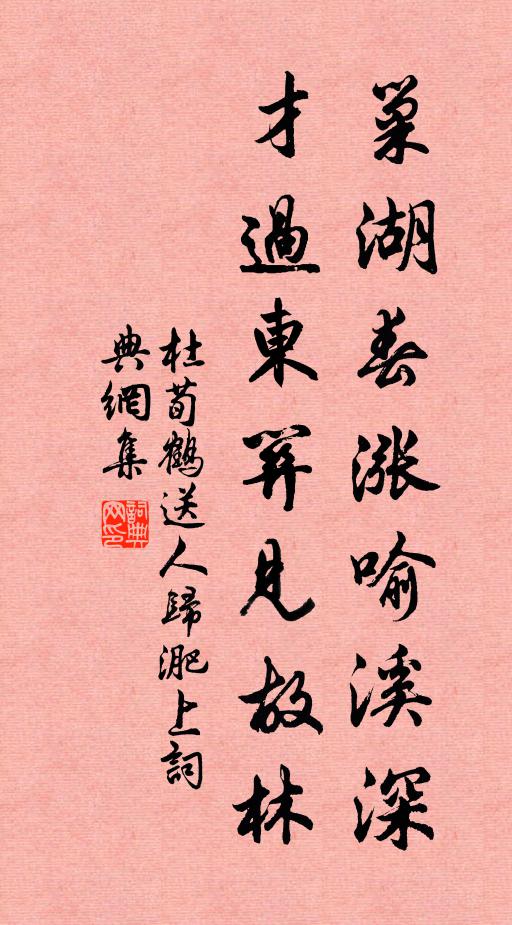 巢湖春漲喻溪深
才過東關見故林
杜荀鶴送人歸淝上詞
典網集
詞典
网印